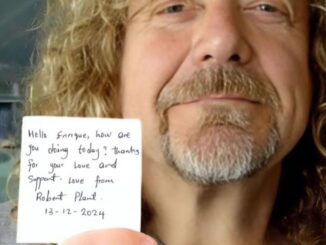 Hello Enrique, how are
you doing today? Thanks
for your love and
support. Love from
Robert Plant.
13-12-2024